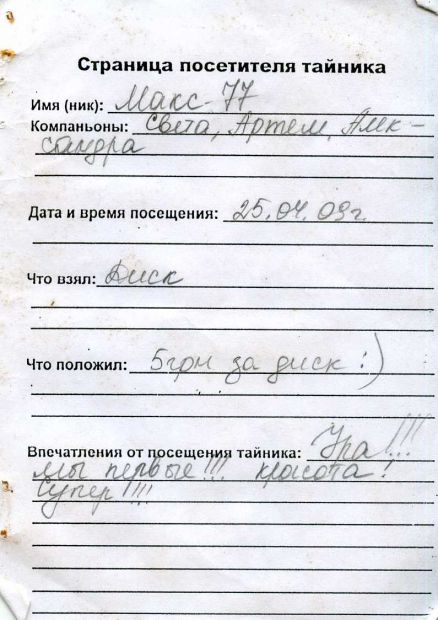 Страница посетителя тайника
Имя (ник): Макс-77
Компаньоны: Света, Артем, Алек-
сандра
Дата и время посещения: 25.04.09г.
Что взял: Диск
Что положил: 5грн за диск :)
Впечатления от посещения тайника: Ура!!!
мы первые!!! красота!
Супер!!!!